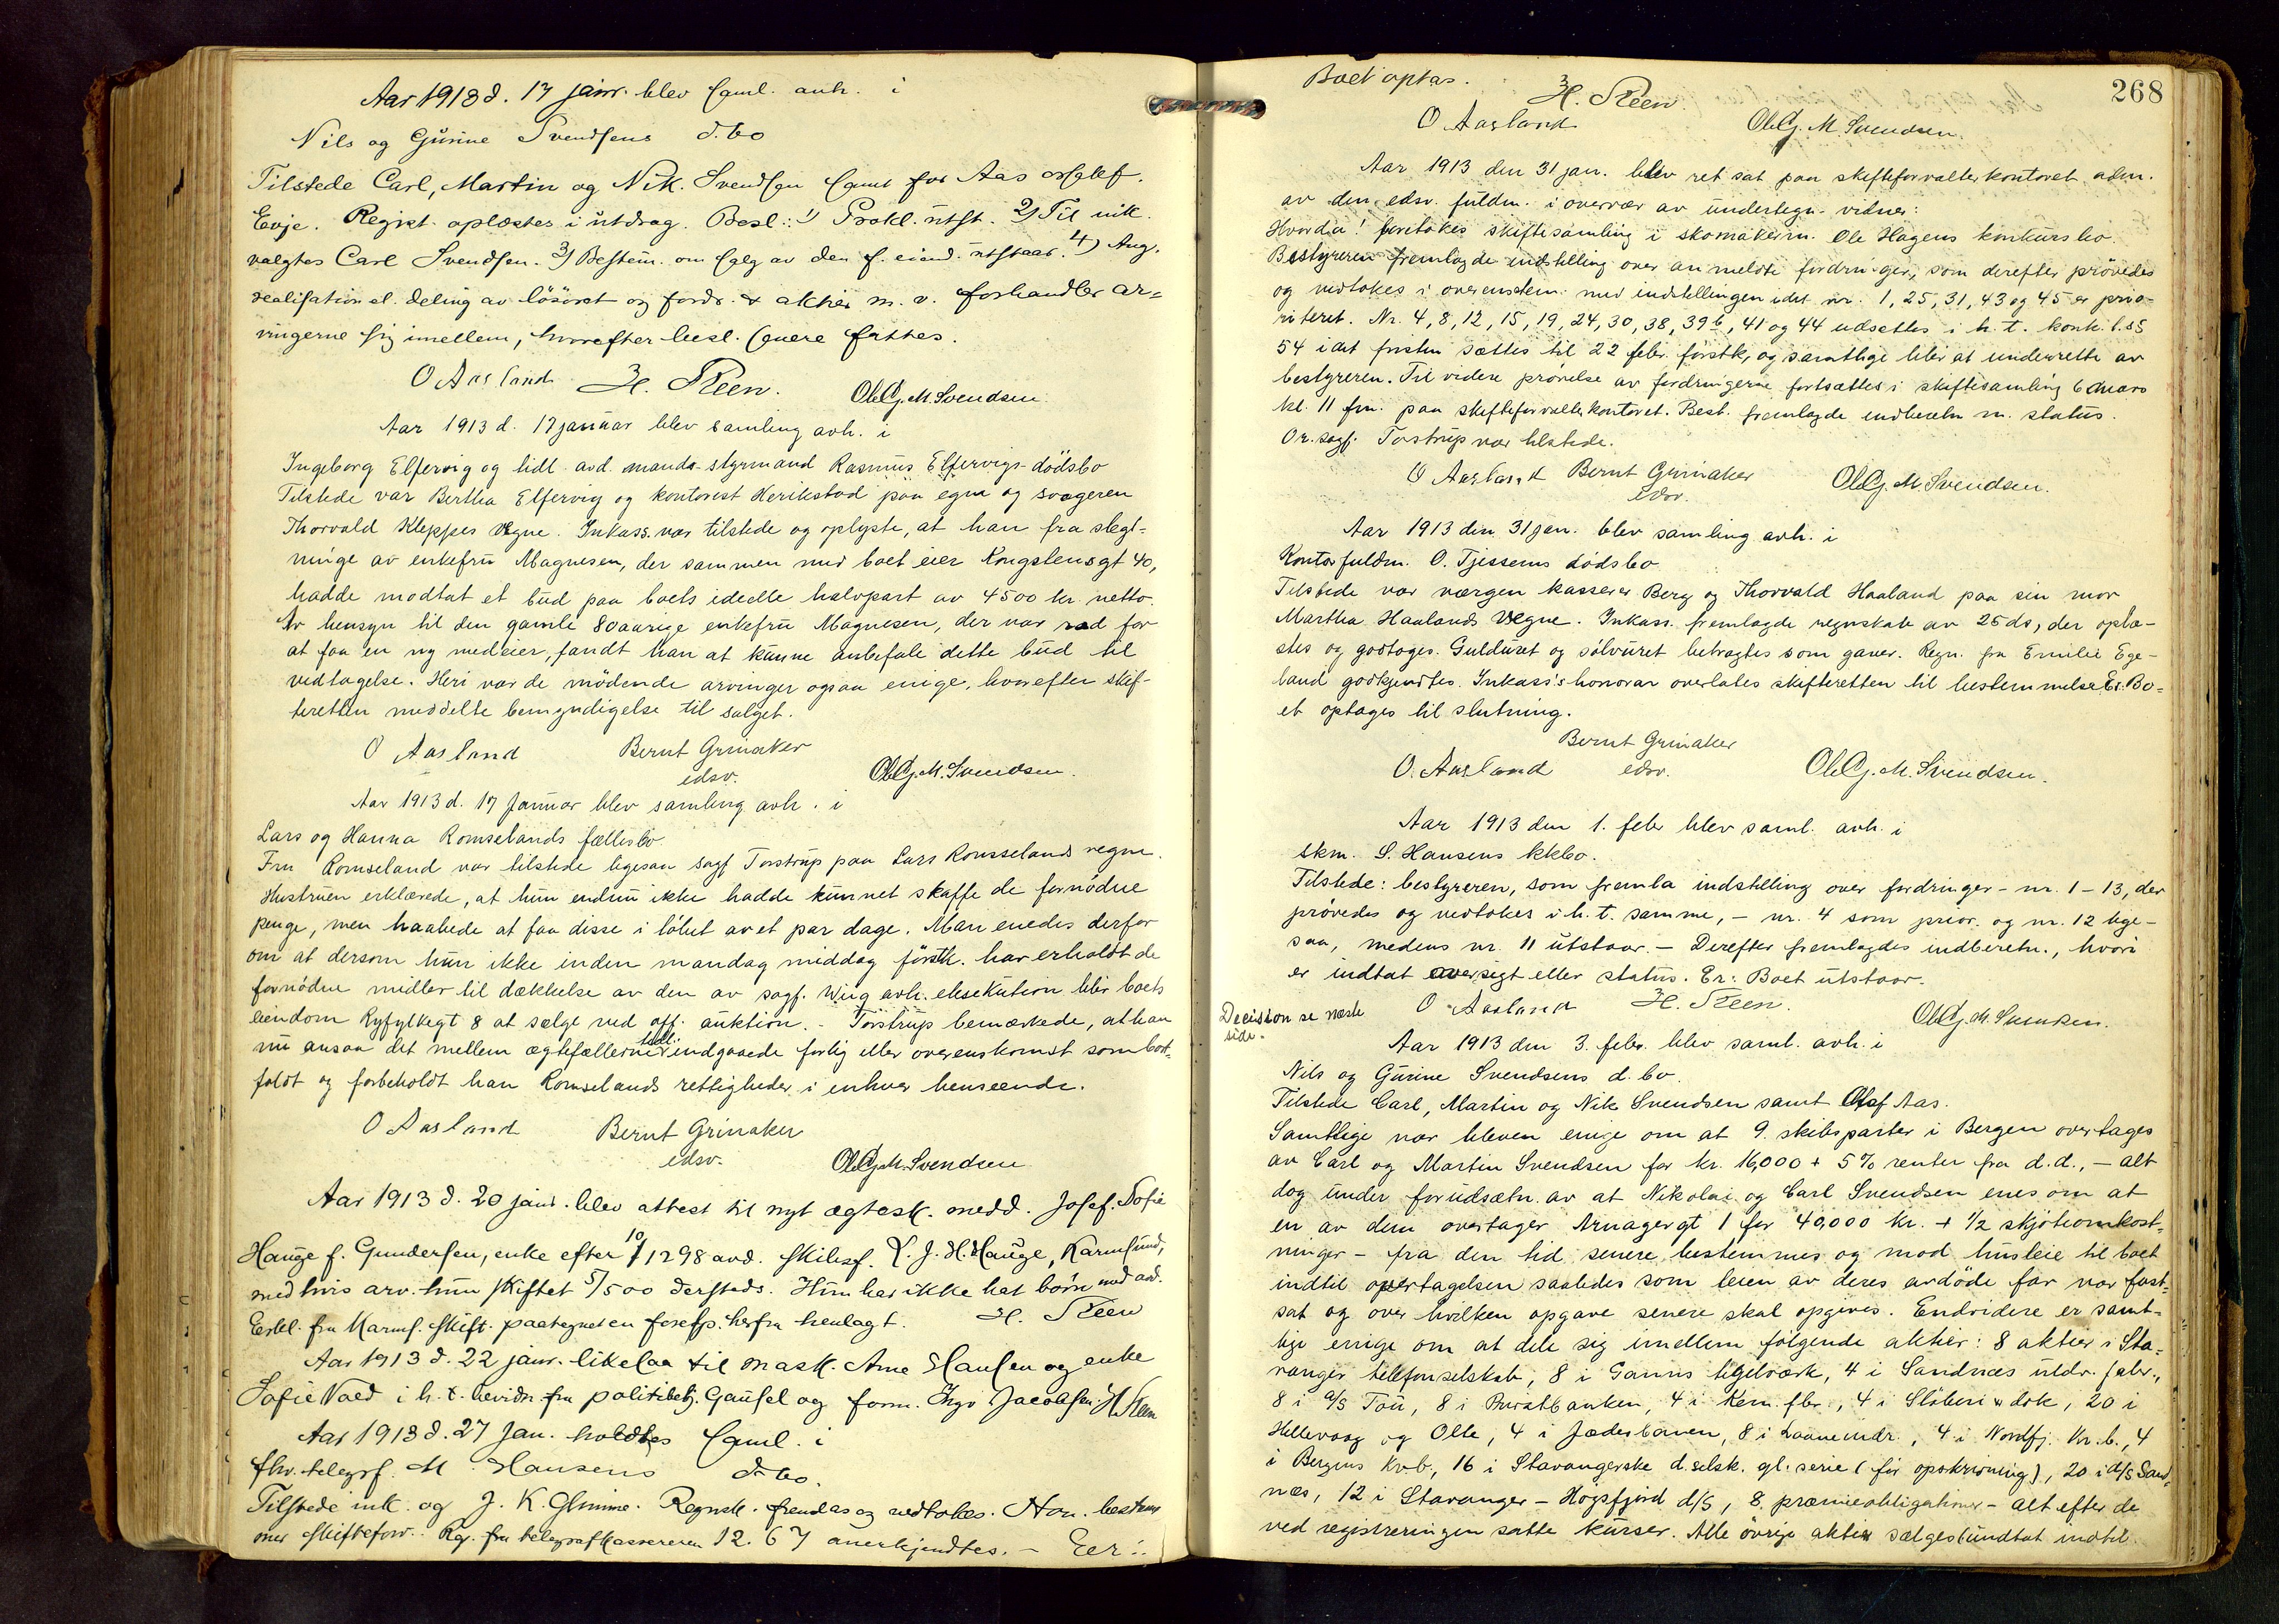 Aar 1913 d. 17 janr. blev saml. avh. i
Nils og Gurine Svendsens d. bo
Tilstede Carl, Martin og Nik. Svendsen samt for Aas
Evje. Regist. oplæstes i utdrag. Besl.: 1) Prokl. utst. 2) Til ink.
valgtes Carl Svendsen. 3) Bestem. om salg av den f. eiend. utstaar. 4) Ang.
realisation el. deling av lösöret og fordr. & aktier m. v. forhandler ar-
vingerne sig imellem, hvorefter besl. senere fattes.
O Aasland H. Steen. Ole G. M. Svendsen
Aar 1913 d. 17 januar blev samling avh. i
Ingeborg Elfervig og tidl. avd. mands styrmand Rasmus Elfervigs dödsbo
Tilstede var Bertha Elfervig og kontorist Herikstad paa egne og svogeren
Thorvald Kleppes vegne. Inkass. var tilstede og oplyste, at han fra slegt-
ninge av enkefru Magnesen, der sammen med boet eier Kongstensgt 40,
hadde modtat et bud paa boets ideelle halvpart av 4500 kr. netto.
Av hensyn til den gamle 80aarige enkefru Magnesen, der var ræd for
at faa en ny medeier, fandt han at kunne anbefale dette bud til
vedtagelse. Heri var de mödende arvinger ogsaa enige, hvorefter skif-
teretten meddelte bemyndigelse til salget.
O Aasland Bernt Grinaker Ole G. M. Svendsen.
edsv.
Aar 1913 d. 17 Januar blev samling avh. i
Lars og Hanna Romselands fællesbo
Fru Romseland var tilstede ligesaa sagf. Torstrup paa Lars Romselands vegne.
Hustruen erklærede, at hun endnu ikke hadde kunnet skaffe de fornödne
penge, men haabede at faa disse i löbet av et par dage. Man enedes derfor
om at dersom hun ikke inden mandag middag förstk. har erholdt de
fornödne midler til dækkelse av den av sagf. Wiig avh. eksekution blir boets
eiendom Ryfylkegt 8 at sælge ved off. auktion. - Torstrup bemærkede, at han
nu ansaa det mellem ægtefællerne tidl. indgaaede forlig eller overenskomst som bort-
faldt og forbeholdt han Romselands rettigheder i enhver henseende.
O Aasland Bernt Grinaker
edsv. Ole G. M. Svendsen
Aar 1913 d. 20 janr. blev attest til nyt ægtesk. medd. Josef. Sofie
Hauge f. Gundersen, enke efter 10/12 98 avd. skibsf. J. H. Hauge, Karmsund,
med hvis arv. hun skiftet 5/5 00 dersteds. Hun har ikke hat börn med avd.
Erkl. fra Karms. skift. paategnet en foresp. herfra henlagt. H. Steen
Aar 1913 d. 22 janr. likesaa til mask. Arne Hansen og enke
Sofie Vaed i h. t. bevidn. fra politibetj. Gausel og form. Ingv. Jacobsen. H Steen
Aar 1913 d. 27 Jan. holdtes saml. i
fhv. telegrf. M. Hansens d. bo.
Tilstede ink. og J. K. Glimme. Regnsk. fremlas og vedtokes. Hon. bestem
mes skifteforv. Reg. fra telegrafkassereren 12.67 anerkjendtes. - Eer:
268
Boet optas.
H. Steen.
O Aasland Ole G. M. Svendsen.
Aar 1913 den 31 jan. blev ret sat paa skifteforvalterkontoret adm.
av den edsv. fuldm. i overvær av undertegn. vidner:
Hvorda! foretokes skiftesamling i skomakerm. Ole Hagens konkursbo.
Bestyreren fremlagde indstilling over anmeldte fordringer, som derefter prövedes
og vedtokes i overenstem. med indstillingen idet nr. 1, 25, 31, 43 og 45 er prio-
riteret. Nr. 4, 8, 12, 15, 19, 24, 30, 38, 39 b, 41 og 44 udsettes i h. t. konk. l. §§
54 idet fristen sættes til 22 febr. förstk, og samtlige blir at underrette av
bestyreren. Til videre prövelse av fordringerne fortsættes i skiftesamling 6 mars
kl. 11 fm. paa skifteforvalterkontoret. Best. fremlagde indberetn m. status.
Or. sagf. Torstrup var tilstede.
O Aasland Bernt Grinaker Ole G. M. Svendsen.
edsv.
Aar 1913 den 31 jan. blev samling avh. i
Kontorfuldm. O. Tjessems dödsbo
Tilstede var værgen kasserer Berg og Thorvald Haaland paa sin mor
Martha Haalands vegne. Inkass. fremlagde regnskab av 25 ds, der oplæ-
stes og godtoges. Gulduret og sölvuret betragtes som gaver. Regn. fra Emilie Ege-
land godkjendtes. Inkass's honorar overlates skifteretten til bestemmelse. Er: Bo-
et optages til slutning.
Bernt Grinaker
O. Aasland edsv. Ole G. M. Svendsen.
Aar 1913 den 1. febr blev saml. avh. i
skm. S. Hansens kkbo.
Tilstede: bestyreren, som fremla indstilling over fordringer - nr. 1-13, der
prövedes og vedtokes i h. t. samme, - nr. 4 som prior. og nr. 12 lige-
saa, medens nr. 11 utstaar. - Derefter fremlagdes indberetn., hvori
er indtat oversigt eller status. Er: Boet utstaar.
Decision se næste side.
O Aasland H. Steen. Ole G. M. Svendsen.
Aar 1913 den 3. febr. blev saml. avh. i
Nils og Gurine Svendsens d. bo.
Tilstede Carl, Martin og Nik Svendsen samt Olaf Aas.
Samtlige var bleven enige om at 9. skibsparter i Bergen overtages
av Carl og Martin Svendsen for kr. 16,000 + 5% renter fra d.d., - alt
dog under forudsætn. av at Nikolai og Carl Svendsen enes om at
en av dem overtager Arnagergt 1 for 40,000 kr. + 1/2 skjötomkost-
ninger - fra den tid senere bestemmes og mod husleie til boet
indtil overtagelsen saaledes som leien av deres avdöde far var fast-
sat og over hvilken opgave senere skal opgives. Endvidere er samt-
lige enige om at dele sig imellem fölgende aktier: 8 aktier i Sta-
vanger telefonselskab, 8 i Ganns teglværk, 4 i Sandnæs uldv. fabr.,
8 i A/S Tou, 8 i Privatbanken, 4 i Kem. fbr., 4 i Stöberi & dok, 20 i
Hellevaag og Olte, 4 i Jæderbanen, 8 i Laaneindr., 4 i Nordfj. Kr. b., 4
i Bergens Kr.b., 16 i Stavangerske d. selsk. gl. serie (för opskrivning), 20 i d/S Sand-
næs, 12 i Stavanger-Högsfjord d/S, 8 præmieobligationer - alt efter de
ved registreringen satte kurser. Alle övrige aktier sælges undtat indtil